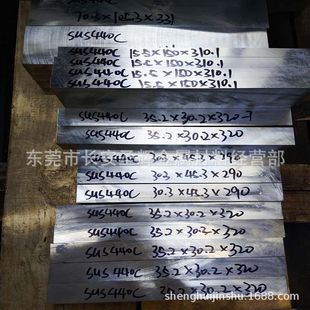 SUS440C
70.3×105.3×331
SUS440C
SUS440C 15.5×150×310.1
SUS440C 15.5×150×310.1
SUS440C 15.5×150×310.1
SUS440C 15.5×150×310.1
SUS440C 35.2×30.2×320-1
SUS440C 35.2×30.2×320
东莞市长安 经营部
SUS440C 30.3×45.3×290
SUS440C 30.3×43.3×290
SUS440C 35.2×30.2×320
SUS440C 35.2×30.2×320
SUS440C 35.2×30.2×320
SUS440C 35.2×30.2×320
SUS440C 30.2×320
shenghuijinshu.1688.com